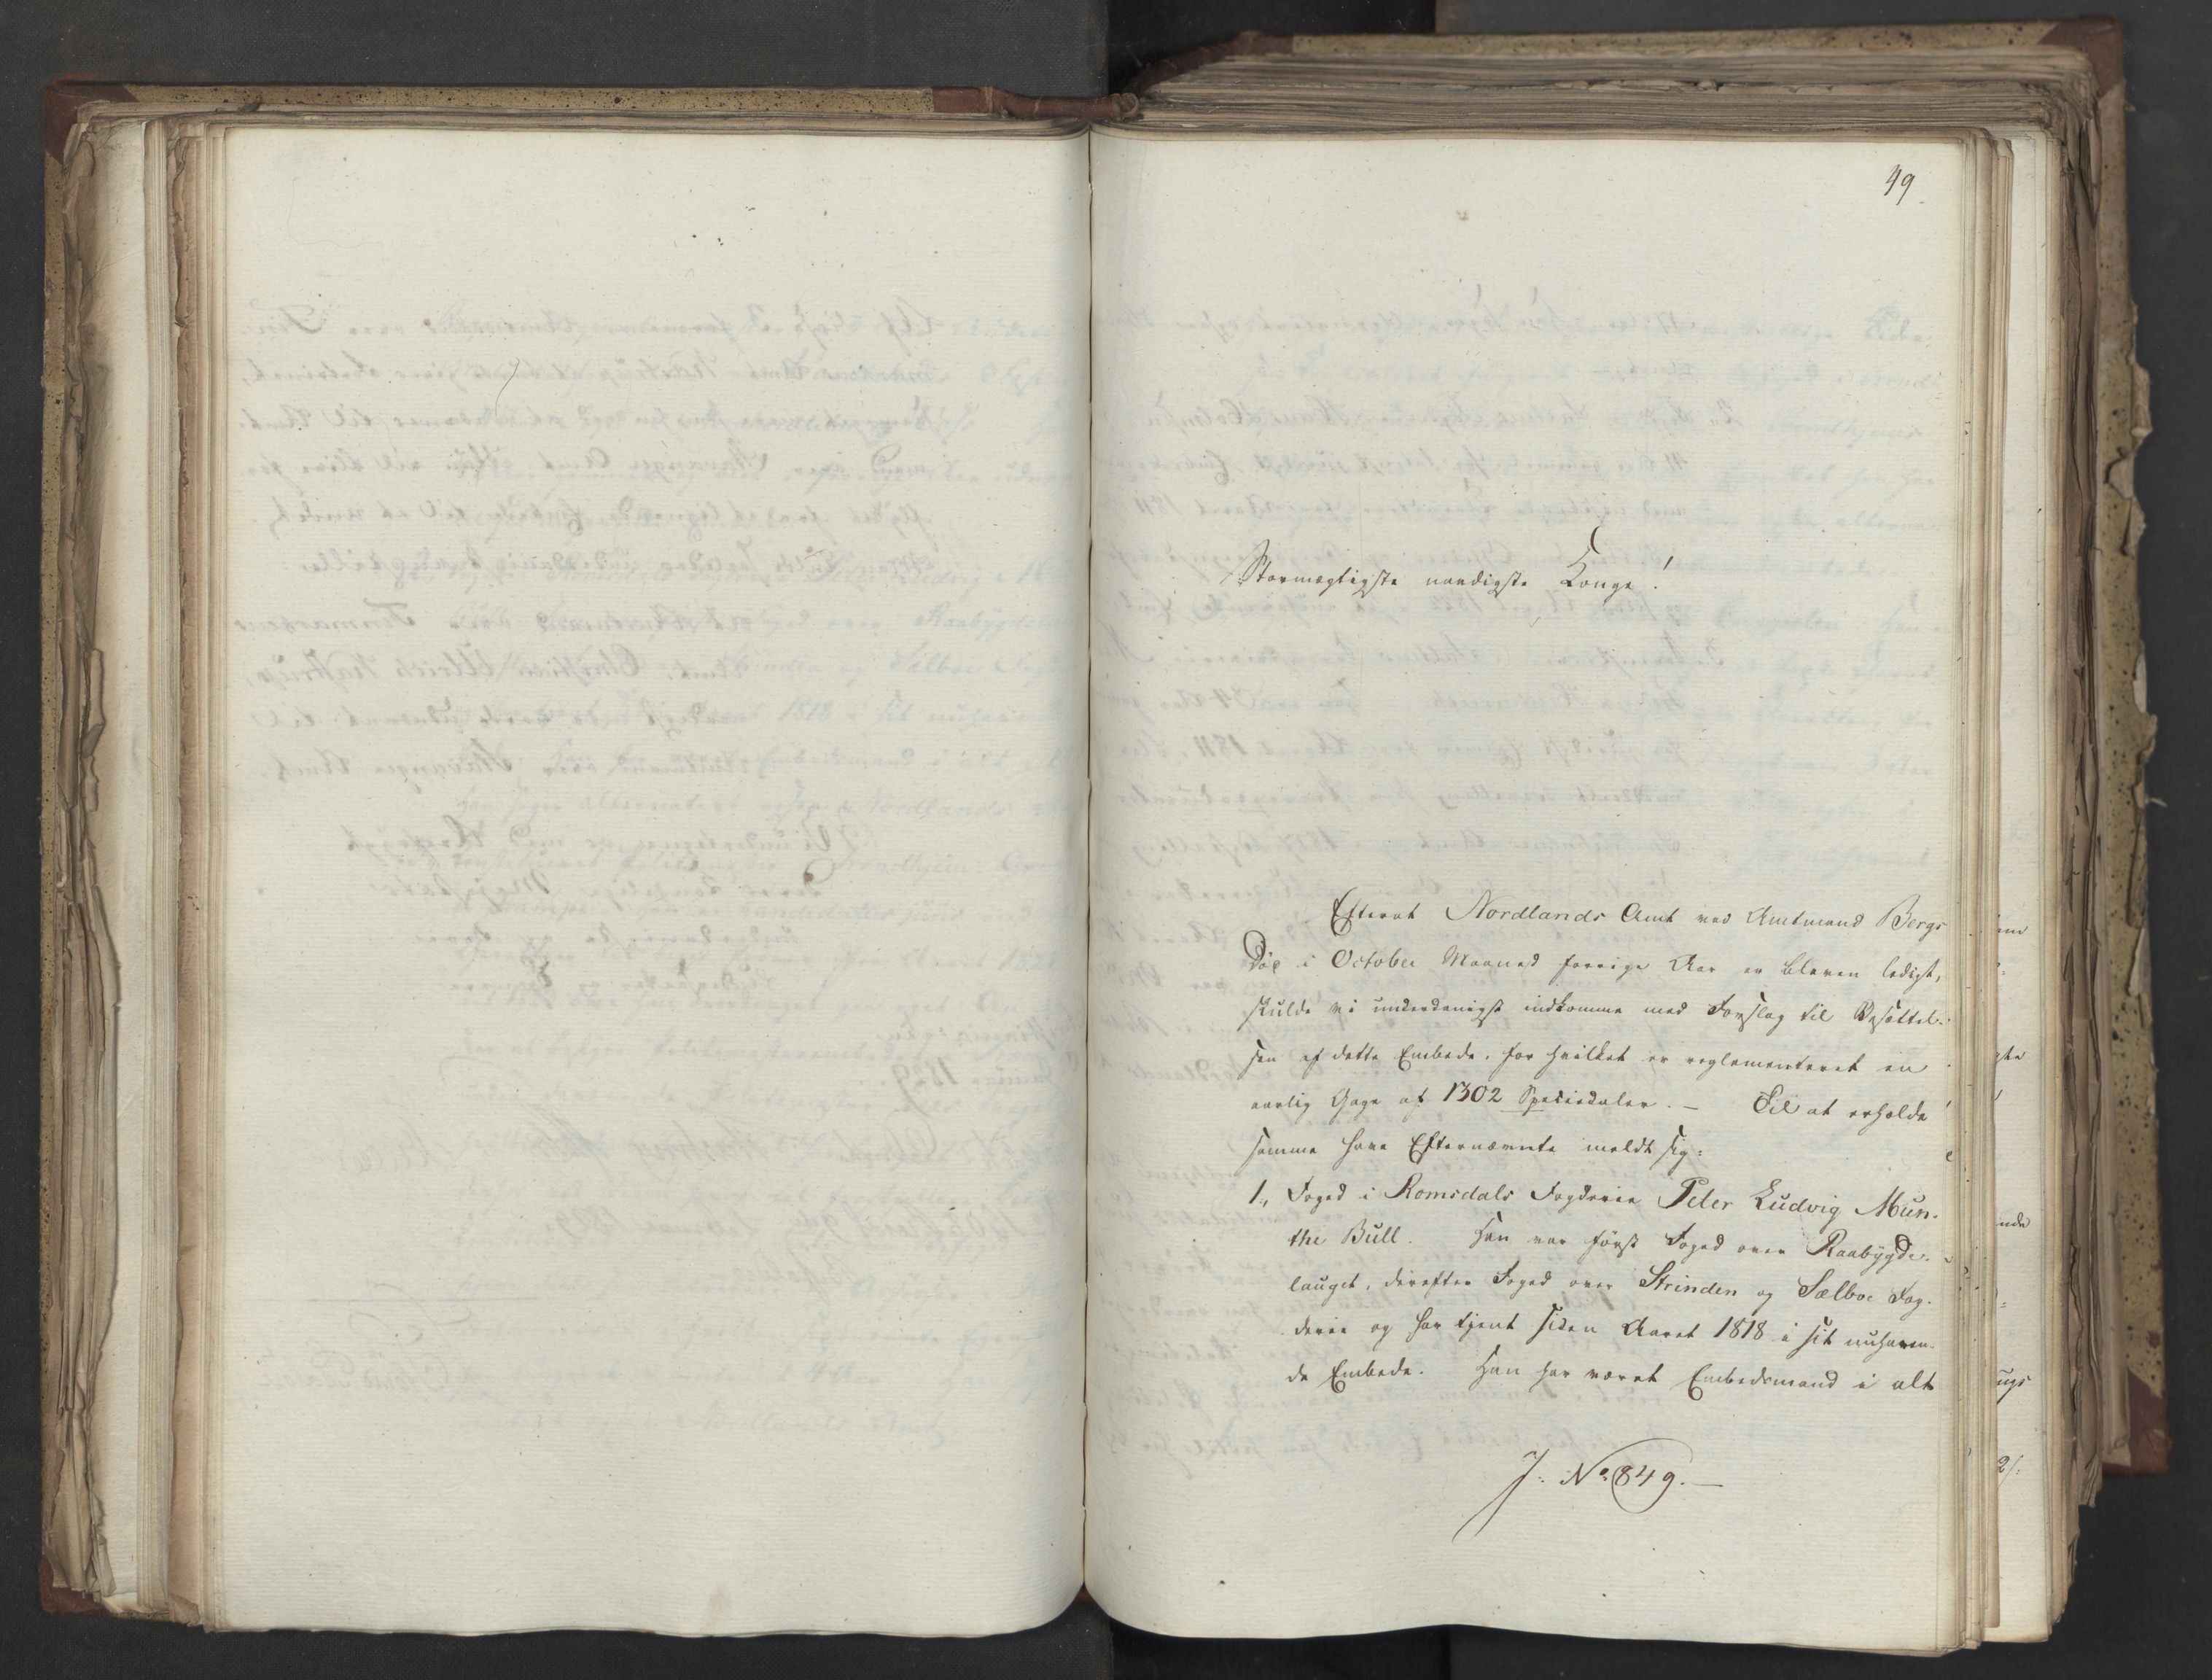 49
Stormægtigste naadigste Konge!
Efterat Nordlands Amt ved Amtmand Bergs
Død i October Maaned forrige Aar er bleven ledigt,
skulde vi underdanigst indkomme med Forslag til Besættel-
sen af dette Embede, for hvilket er reglementeret en
aarlig Gage af 1302 Speciedaler. – Til at erholde
samme have Efternævnte meldt sig:
1., Foged i Romsdals Fogderie Peter Ludvig Mun-
the Bull. Han var først Foged over Raabygde-
lauget, derefter Foged over Strinden og Sælboe Fog-
derie og har tjent siden Aaret 1818 i sit nuhaven-
de Embede. Han har været Embedsmand i alt
J: No 849. —